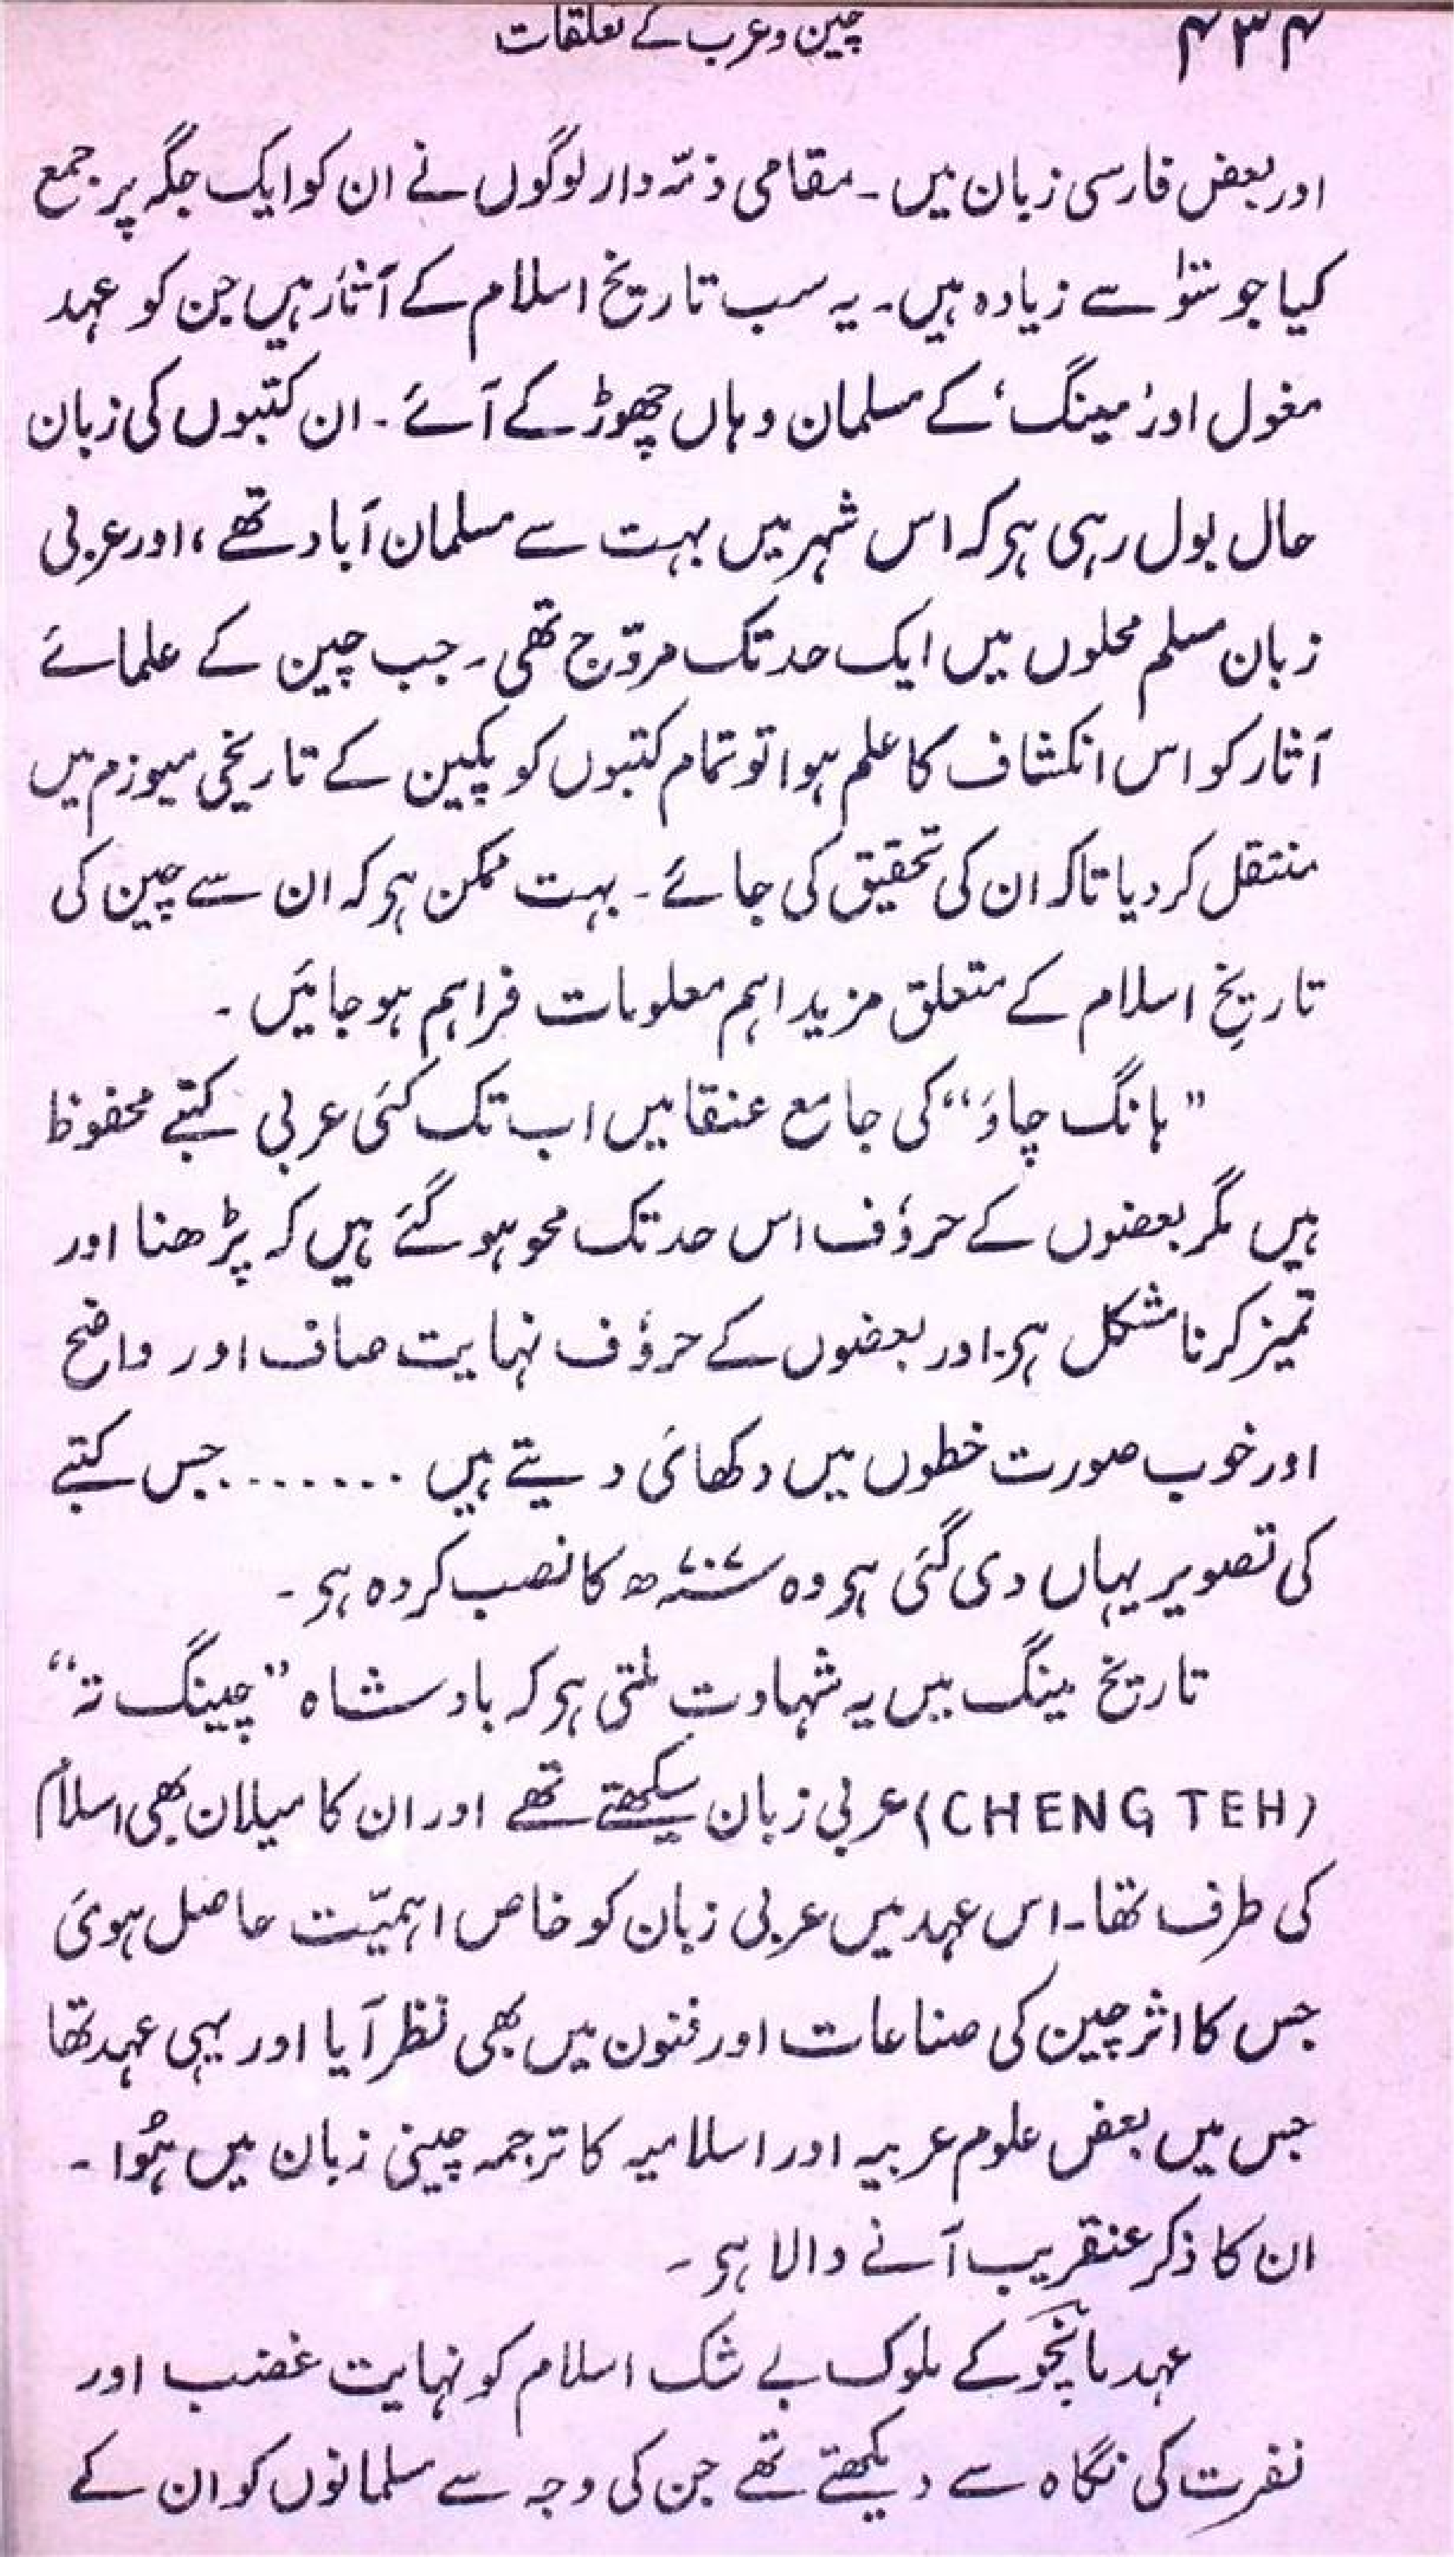 ۴۳۴ چین و عرب کے تعلقات
اور بعض فارسی زبان میں ۔ مقامی ذمّہ دار لوگوں نے ان کو ایک جگہ پر جمع
کیا جو سَو سے زیادہ ہیں۔ یہ سب تاریخ اسلام کے آثار ہیں جن کو عہد
مغول اور ’مینگ‘ کے مسلمان وہاں چھوڑ کے آئے ۔ ان کتبوں کی زبان
حال بول رہی ہو کہ اس شہر میں بہت سے مسلمان آباد تھے، اور عربی
زبان مسلم محلوں میں ایک حد تک مروّج تھی ۔ جب چین کے علمائے
آثار کو اس انکشاف کا علم ہوا تو تمام کتبوں کو پکین کے تاریخی میوزم میں
منتقل کر دیا تاکہ ان کی تحقیق کی جائے ۔ بہت ممکن ہو کہ ان سے چین کی
تاریخِ اسلام کے متعلق مزید اہم معلومات فراہم ہو جائیں ۔
”ہانگ چاؤ“ کی جامع عنقا میں اب تک کئی عربی کتبے محفوظ
ہیں مگر بعضوں کے حروٗف اس حد تک محو ہو گئے ہیں کہ پڑھنا اور
تمیز کرنا مشکل ہو۔ اور بعضوں کے حروٗف نہایت صاف اور واضح
اور خوب صورت خطوں میں دکھائی دیتے ہیں ........ جس کتبے
کی تصویر یہاں دی گئی ہو وہ ۷۰۷ھ کا نصب کردہ ہو ۔
تاریخ مینگ میں یہ شہادت ملتی ہو کہ بادشاہ ”چینگ تہ“
(CHENG TEH) عربی زبان سیکھتے تھے اور ان کا میلان بھی اسلام
کی طرف تھا ۔ اس عہد میں عربی زبان کو خاص اہمیّت حاصل ہوئی
جس کا اثر چین کی صناعات اور فنون میں بھی نظر آیا اور یہی عہد تھا
جس میں بعض علوم عربیہ اور اسلامیہ کا ترجمہ چینی زبان میں ہُوا ۔
ان کا ذکر عنقریب آنے والا ہو ۔
عہد مانچو کے ملوک بے شک اسلام کو نہایت غضب اور
نفرت کی نگاہ سے دیکھتے تھے جن کی وجہ سے مسلمانوں کو ان کے